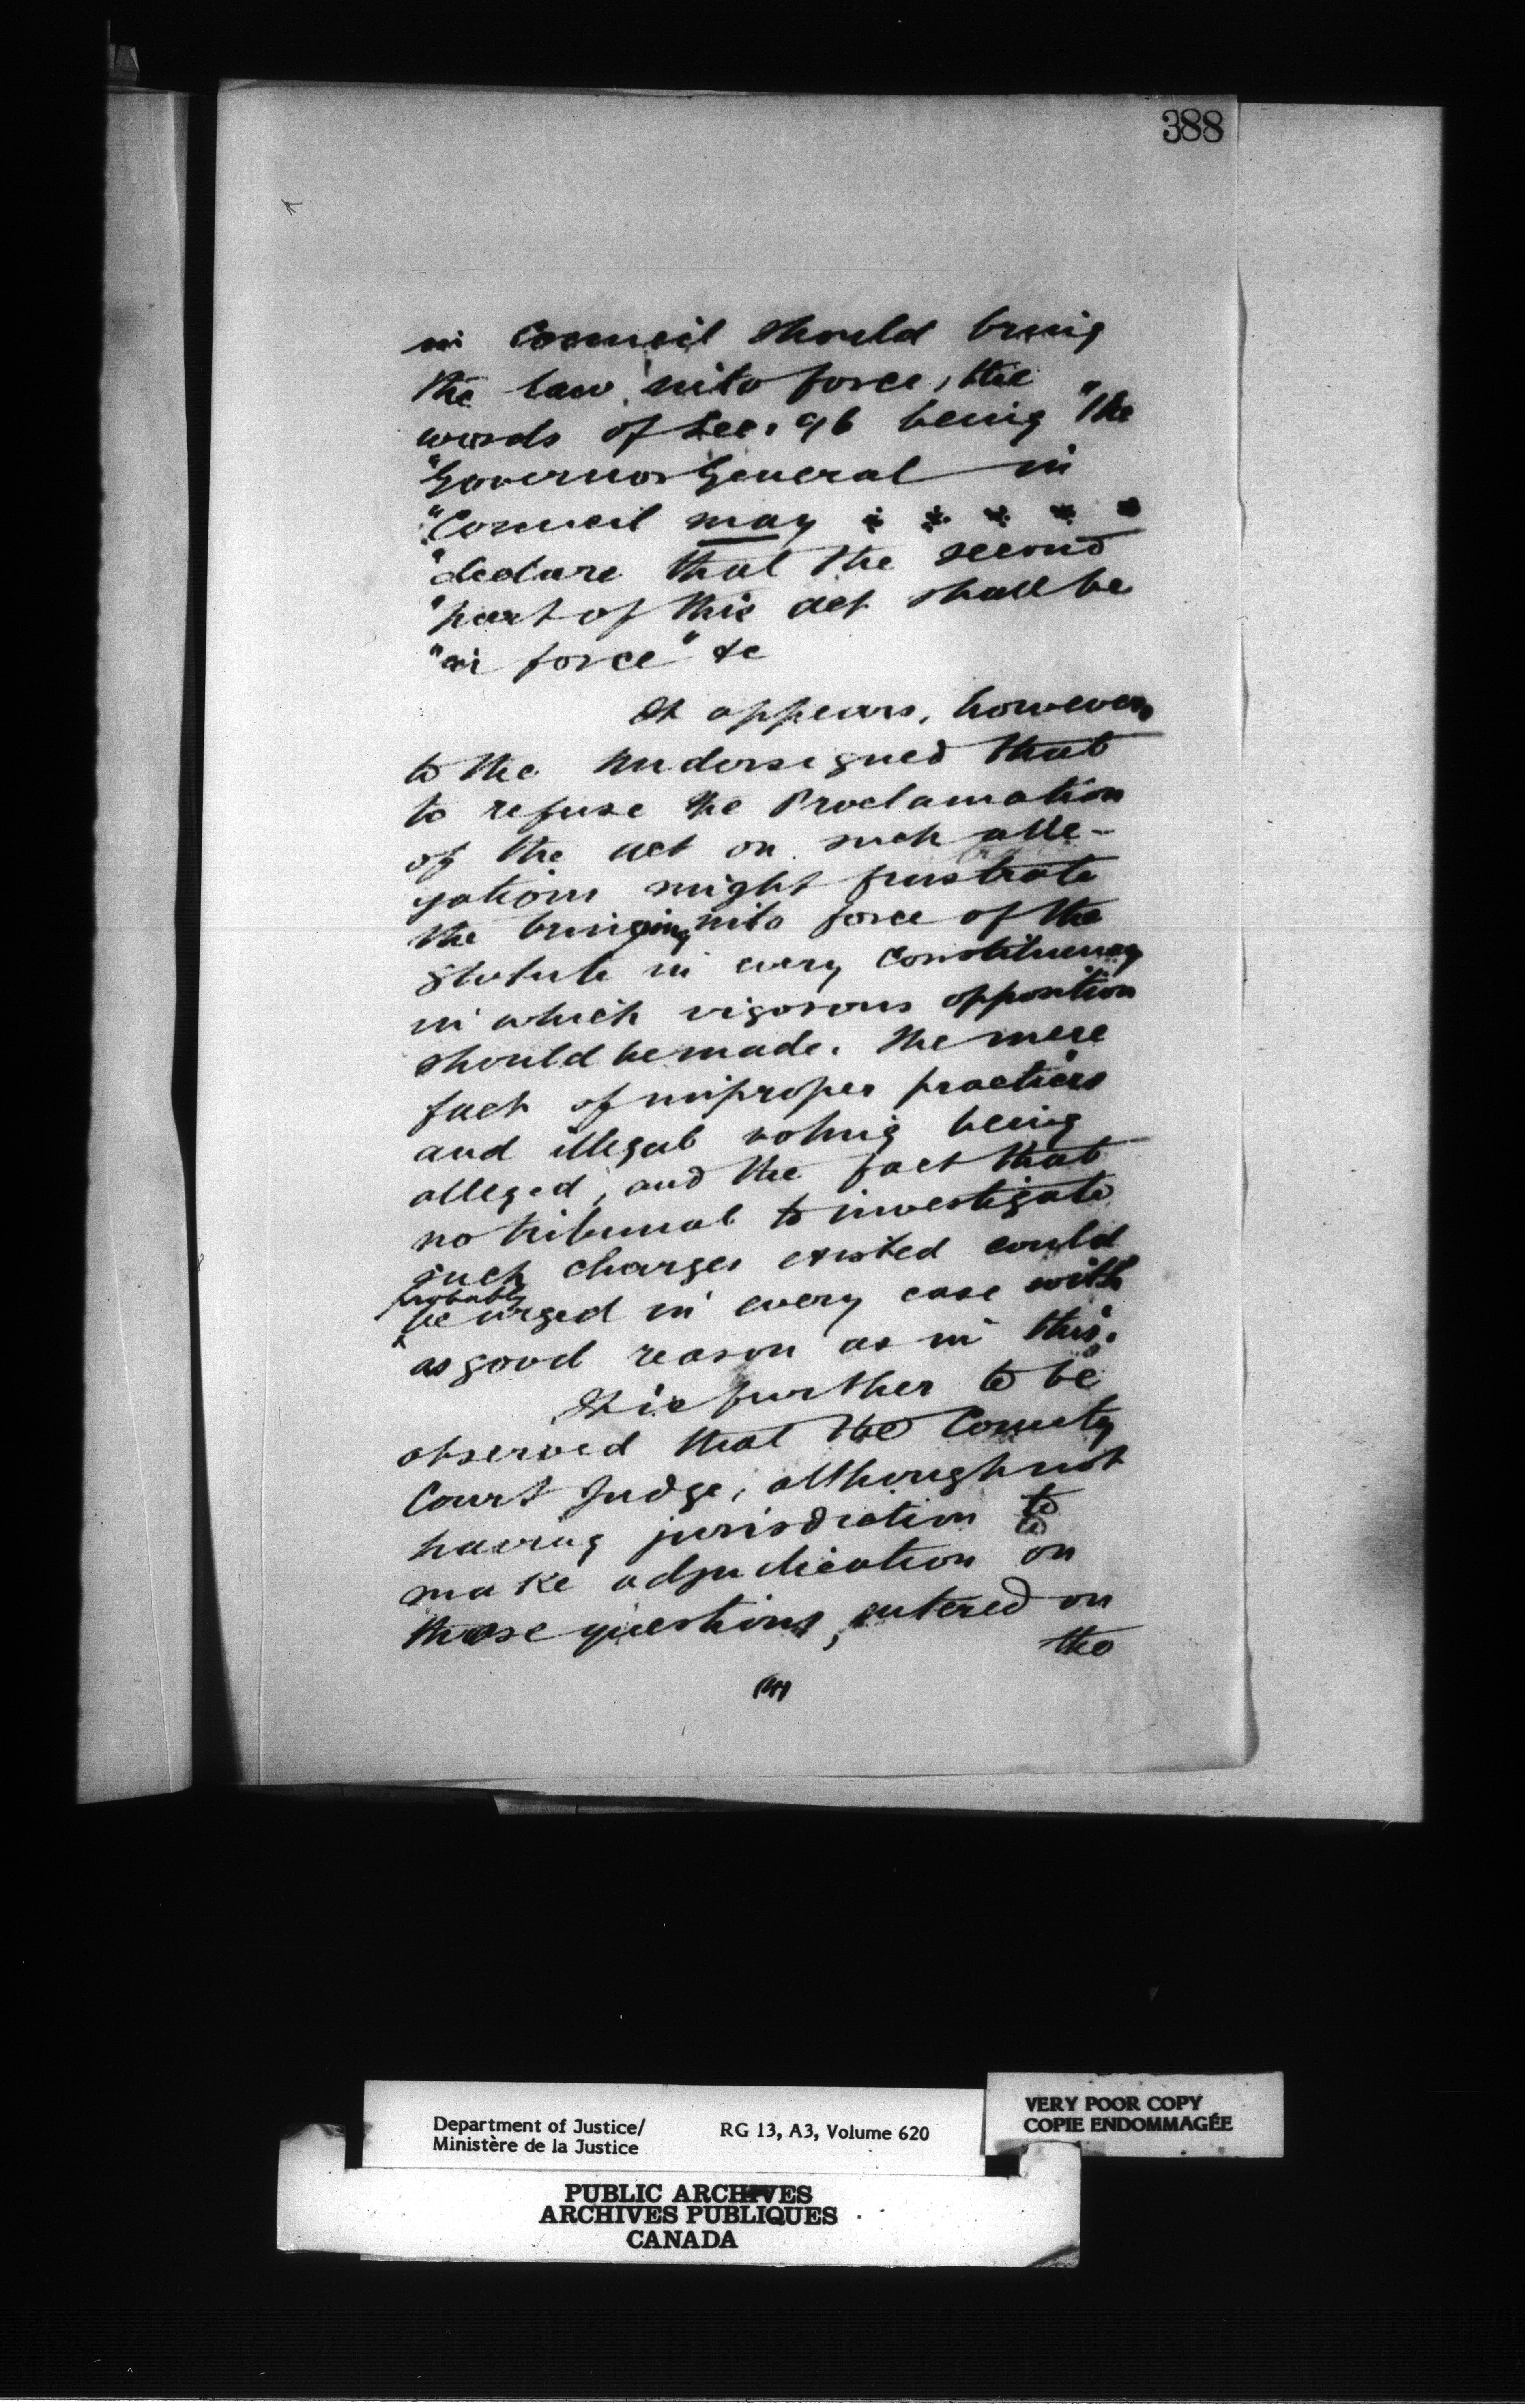 388
in Council should bring
the law into force, the
words of Sec. 96 being "the
"Governor General in
"Council may * * * * *
"declare that the second
"part of this act shall be
"in force" &c
It appears, however,
to the undersigned that
to refuse the Proclamation
of the act on such alle-
gations might frustrate
the bringing into force of the
statute in every constituency
in which vigorous opposition
should be made. The mere
fact of improper practices
and illegal voting being
alleged, and the fact that
no tribunal to investigate
such charges existed could
probably
be urged in every case with
as good reason as in this.
It is further to be
observed that the County
Court Judge, although not
having jurisdiction to
make adjudication on
those questions, entered on
the
Department of Justice/
Ministère de la Justice
RG 13, A3, Volume 620
VERY POOR COPY
COPIE ENDOMMAGÉE
PUBLIC ARCHIVES
ARCHIVES PUBLIQUES
CANADA